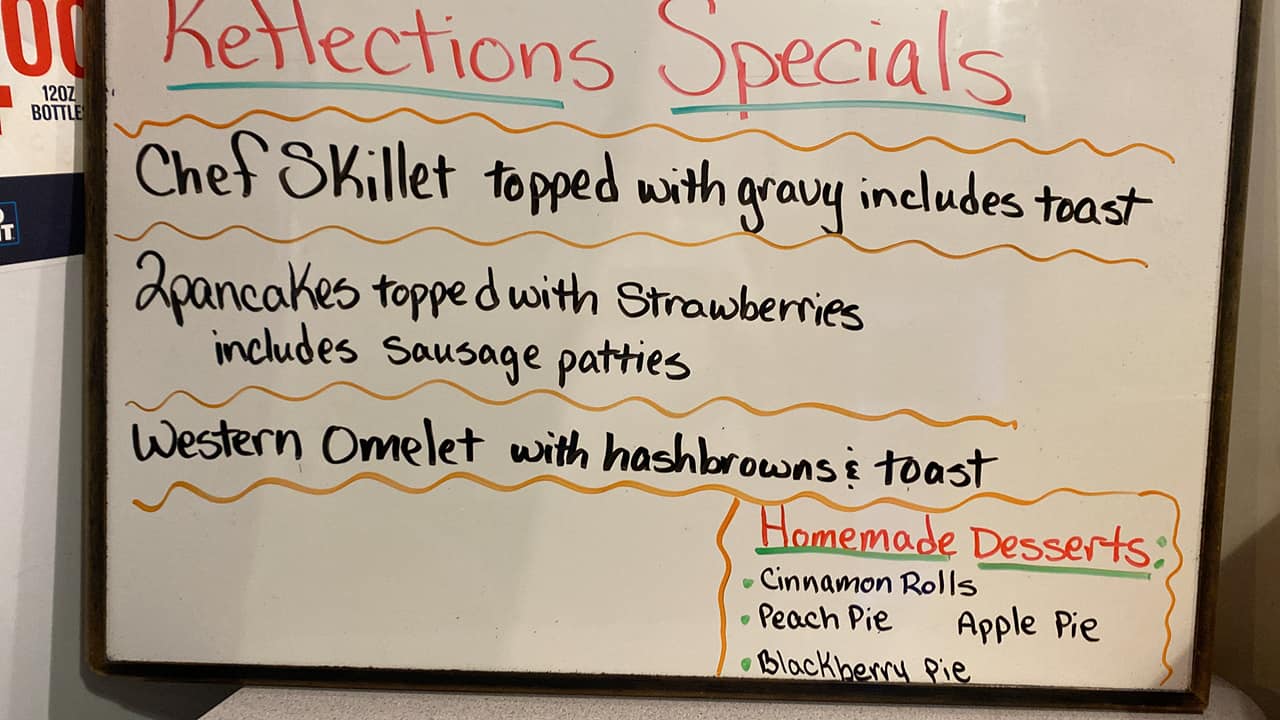 12OZ
BOTTLE
Reflections Specials
Chef Skillet topped with gravy includes toast
2 pancakes topped with Strawberries
includes sausage patties
Western Omelet with hashbrowns & toast
Homemade Desserts:
• Cinnamon Rolls
• Peach Pie Apple Pie
• Blackberry Pie